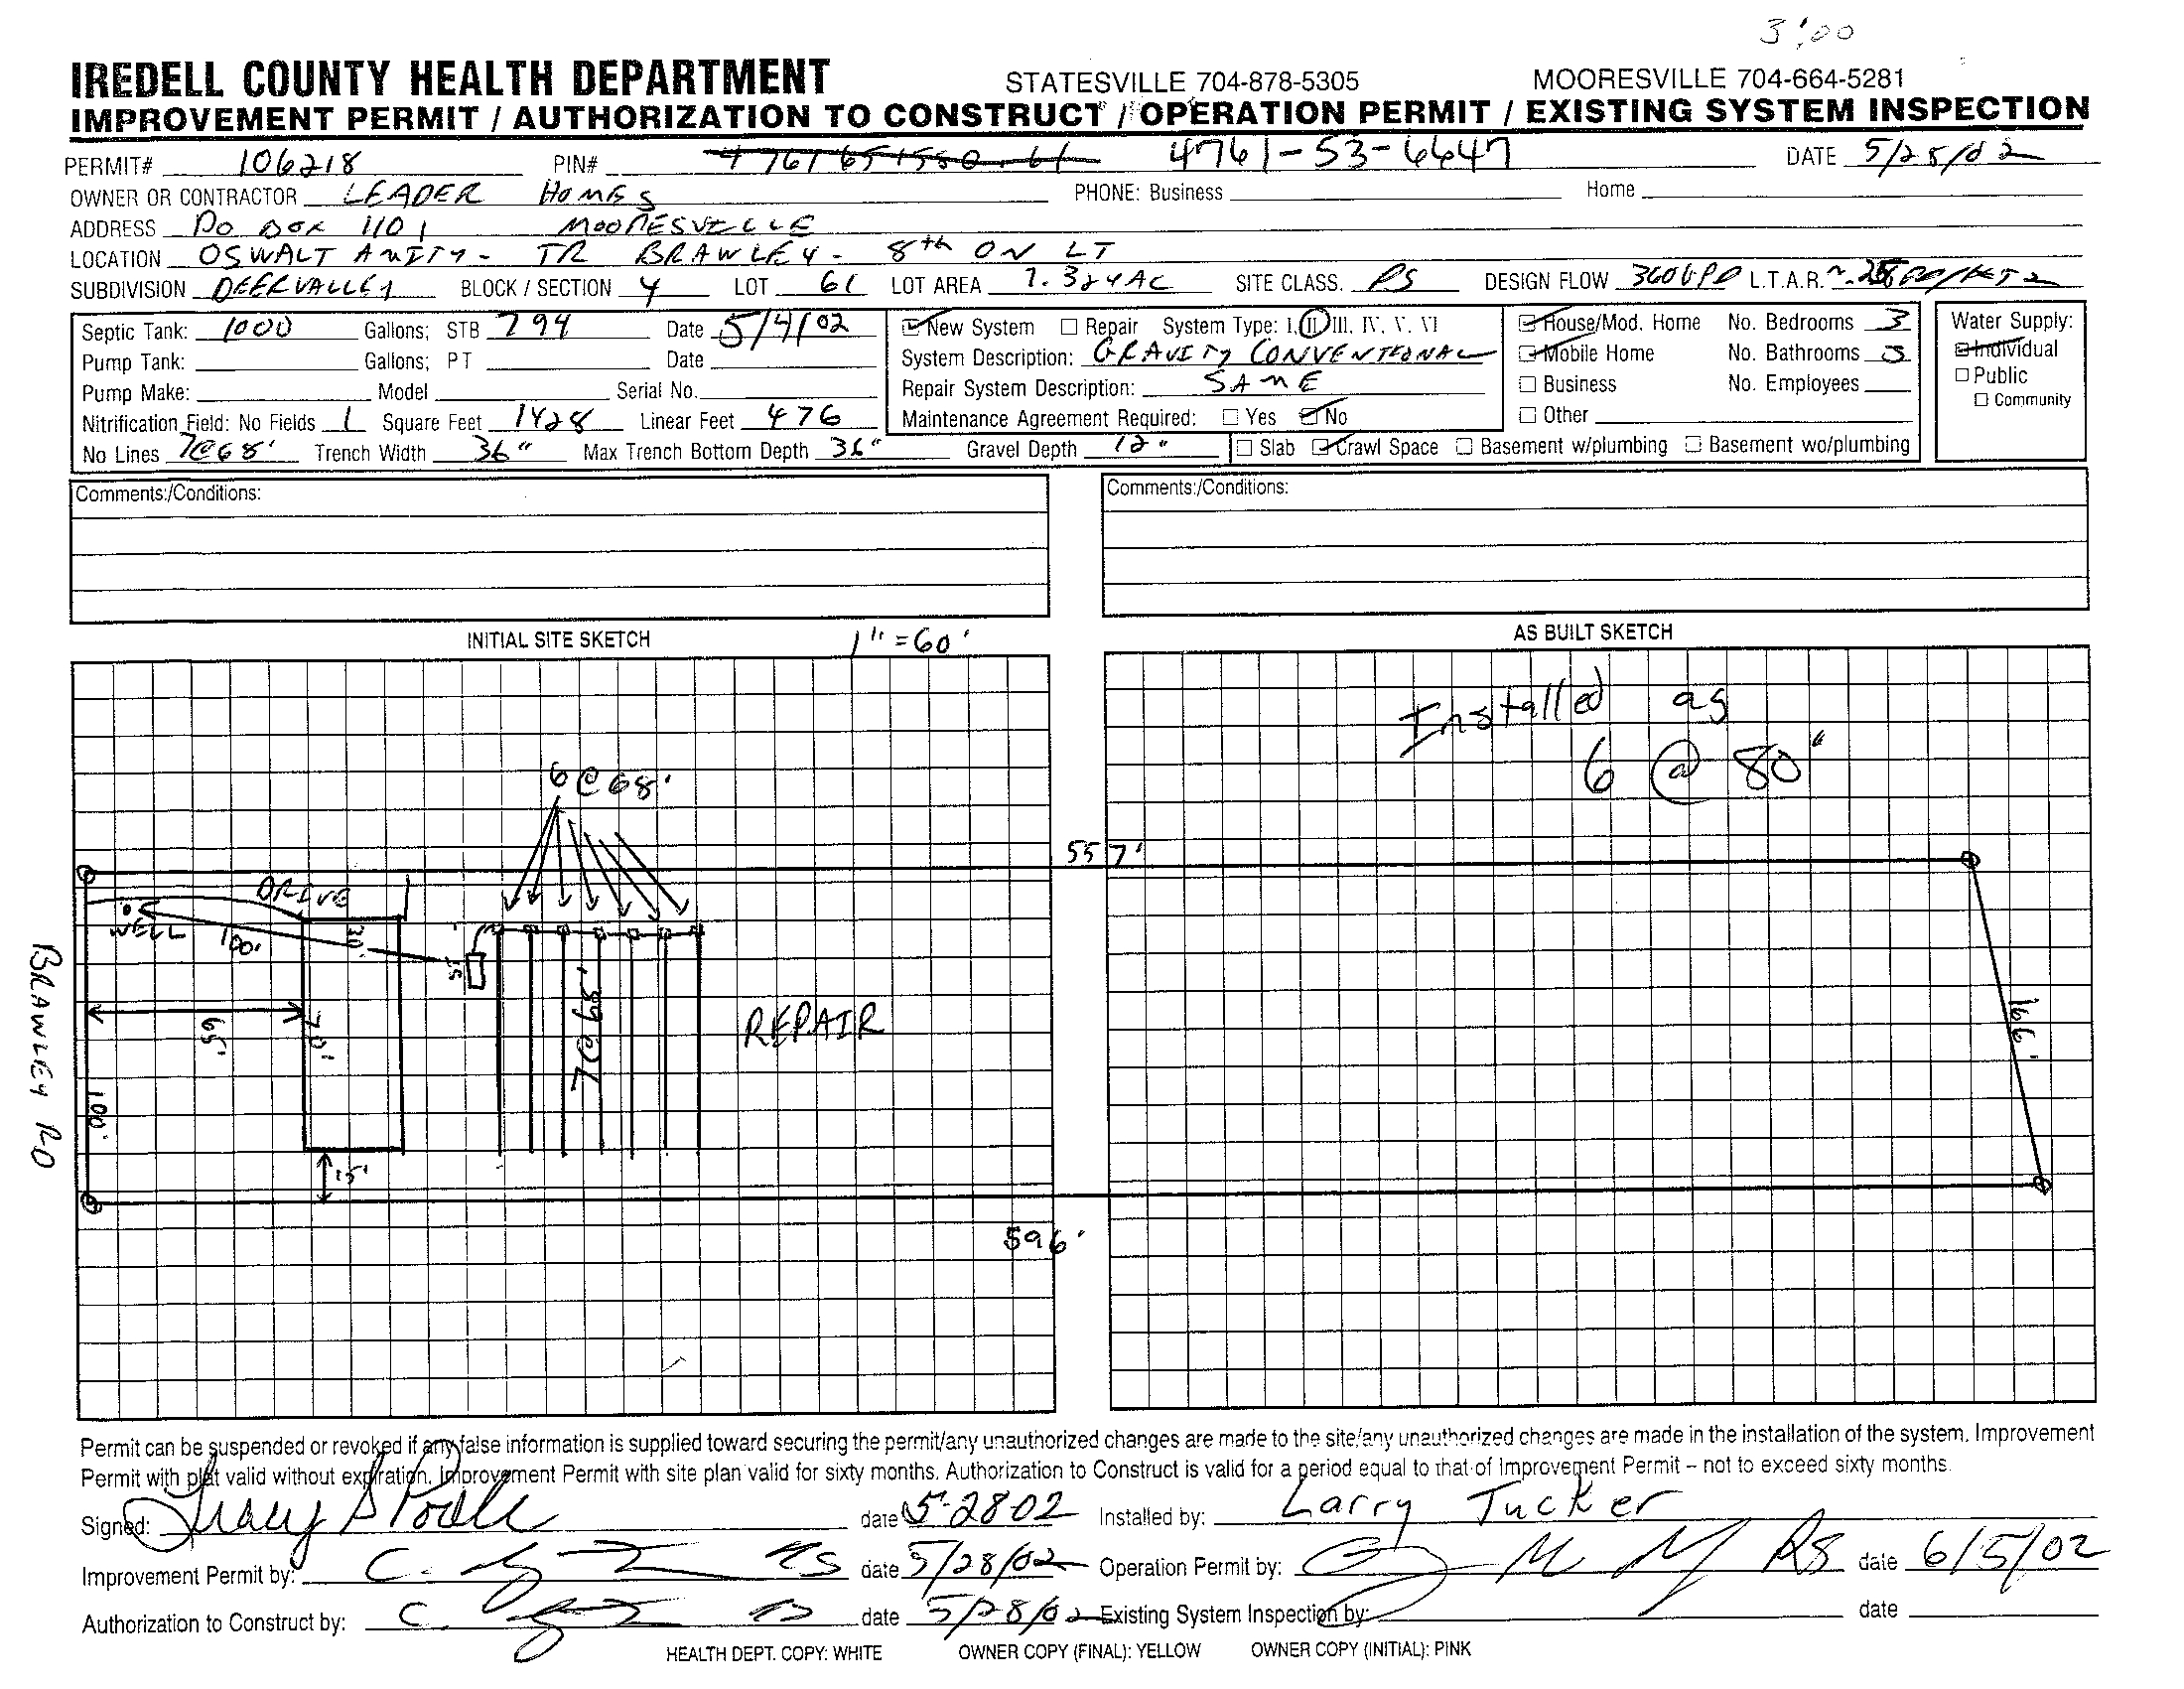 3:00
IREDELL COUNTY HEALTH DEPARTMENT STATESVILLE 704-878-5305 MOORESVILLE 704-664-5281
IMPROVEMENT PERMIT / AUTHORIZATION TO CONSTRUCT / OPERATION PERMIT / EXISTING SYSTEM INSPECTION
PERMIT# 106218 PIN# 4761-53-6647 DATE 5/28/02
OWNER OR CONTRACTOR LEADER HOMES PHONE: Business Home
ADDRESS PO BOX 1101 MOORESVILLE
LOCATION OSWALT AMITY - TR BRAWLEY - 8th ON LT
SUBDIVISION DEERVALLEY BLOCK / SECTION 4 LOT 61 LOT AREA 1.324AC SITE CLASS. PS DESIGN FLOW 360GPD L.T.A.R.
Septic Tank: 1000 Gallons; STB 794 Date 5/4/02 New System Repair System Type: I, II, III, IV, V, VI House/Mod. Home No. Bedrooms 3 Water Supply:
Pump Tank: Gallons; PT Date System Description: GRAVITY CONVENTIONAL Mobile Home No. Bathrooms Individual
Pump Make: Model Serial No. Repair System Description: SAME Business No. Employees Public
Nitrification Field: No Fields 1 Square Feet 1428 Linear Feet 476 Maintenance Agreement Required: Yes No Other Community
No Lines 7@68' Trench Width 36" Max Trench Bottom Depth 36" Gravel Depth 12" Slab Crawl Space Basement w/plumbing Basement wo/plumbing
Comments:/Conditions: Comments:/Conditions:
INITIAL SITE SKETCH 1"=60' AS BUILT SKETCH
Installed as
6 @ 80"
6@68'
557'
DRIVE
WELL
100'
30'
15'
BRAWLEY RD
65'
70'
7@68'
REPAIR
166'
100'
15'
596'
Permit can be suspended or revoked if any false information is supplied toward securing the permit/any unauthorized changes are made to the site/any unauthorized changes are made in the installation of the system. Improvement
Permit with plat valid without expiration. Improvement Permit with site plan valid for sixty months. Authorization to Construct is valid for a period equal to that of Improvement Permit – not to exceed sixty months.
Signed: date 5-28-02 Installed by: Larry Tucker
Improvement Permit by: RS date 5/28/02 Operation Permit by: RS date 6/5/02
Authorization to Construct by: date 5/28/02 Existing System Inspection by: date
HEALTH DEPT. COPY: WHITE OWNER COPY (FINAL): YELLOW OWNER COPY (INITIAL): PINK